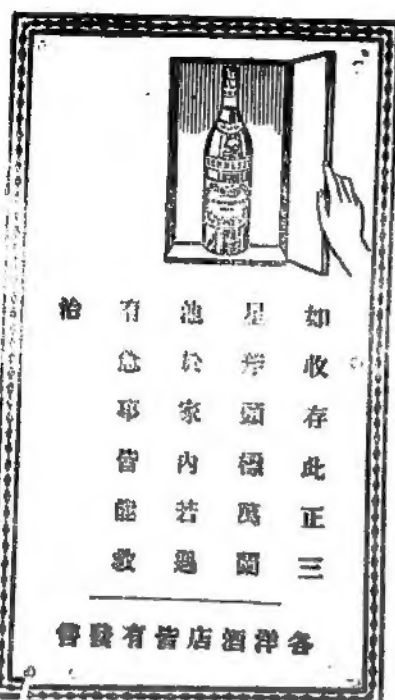 如收存此正三
星斧頭標萬蘭
池於家內若遇
有急耶皆能救
治
各洋酒店皆有發售